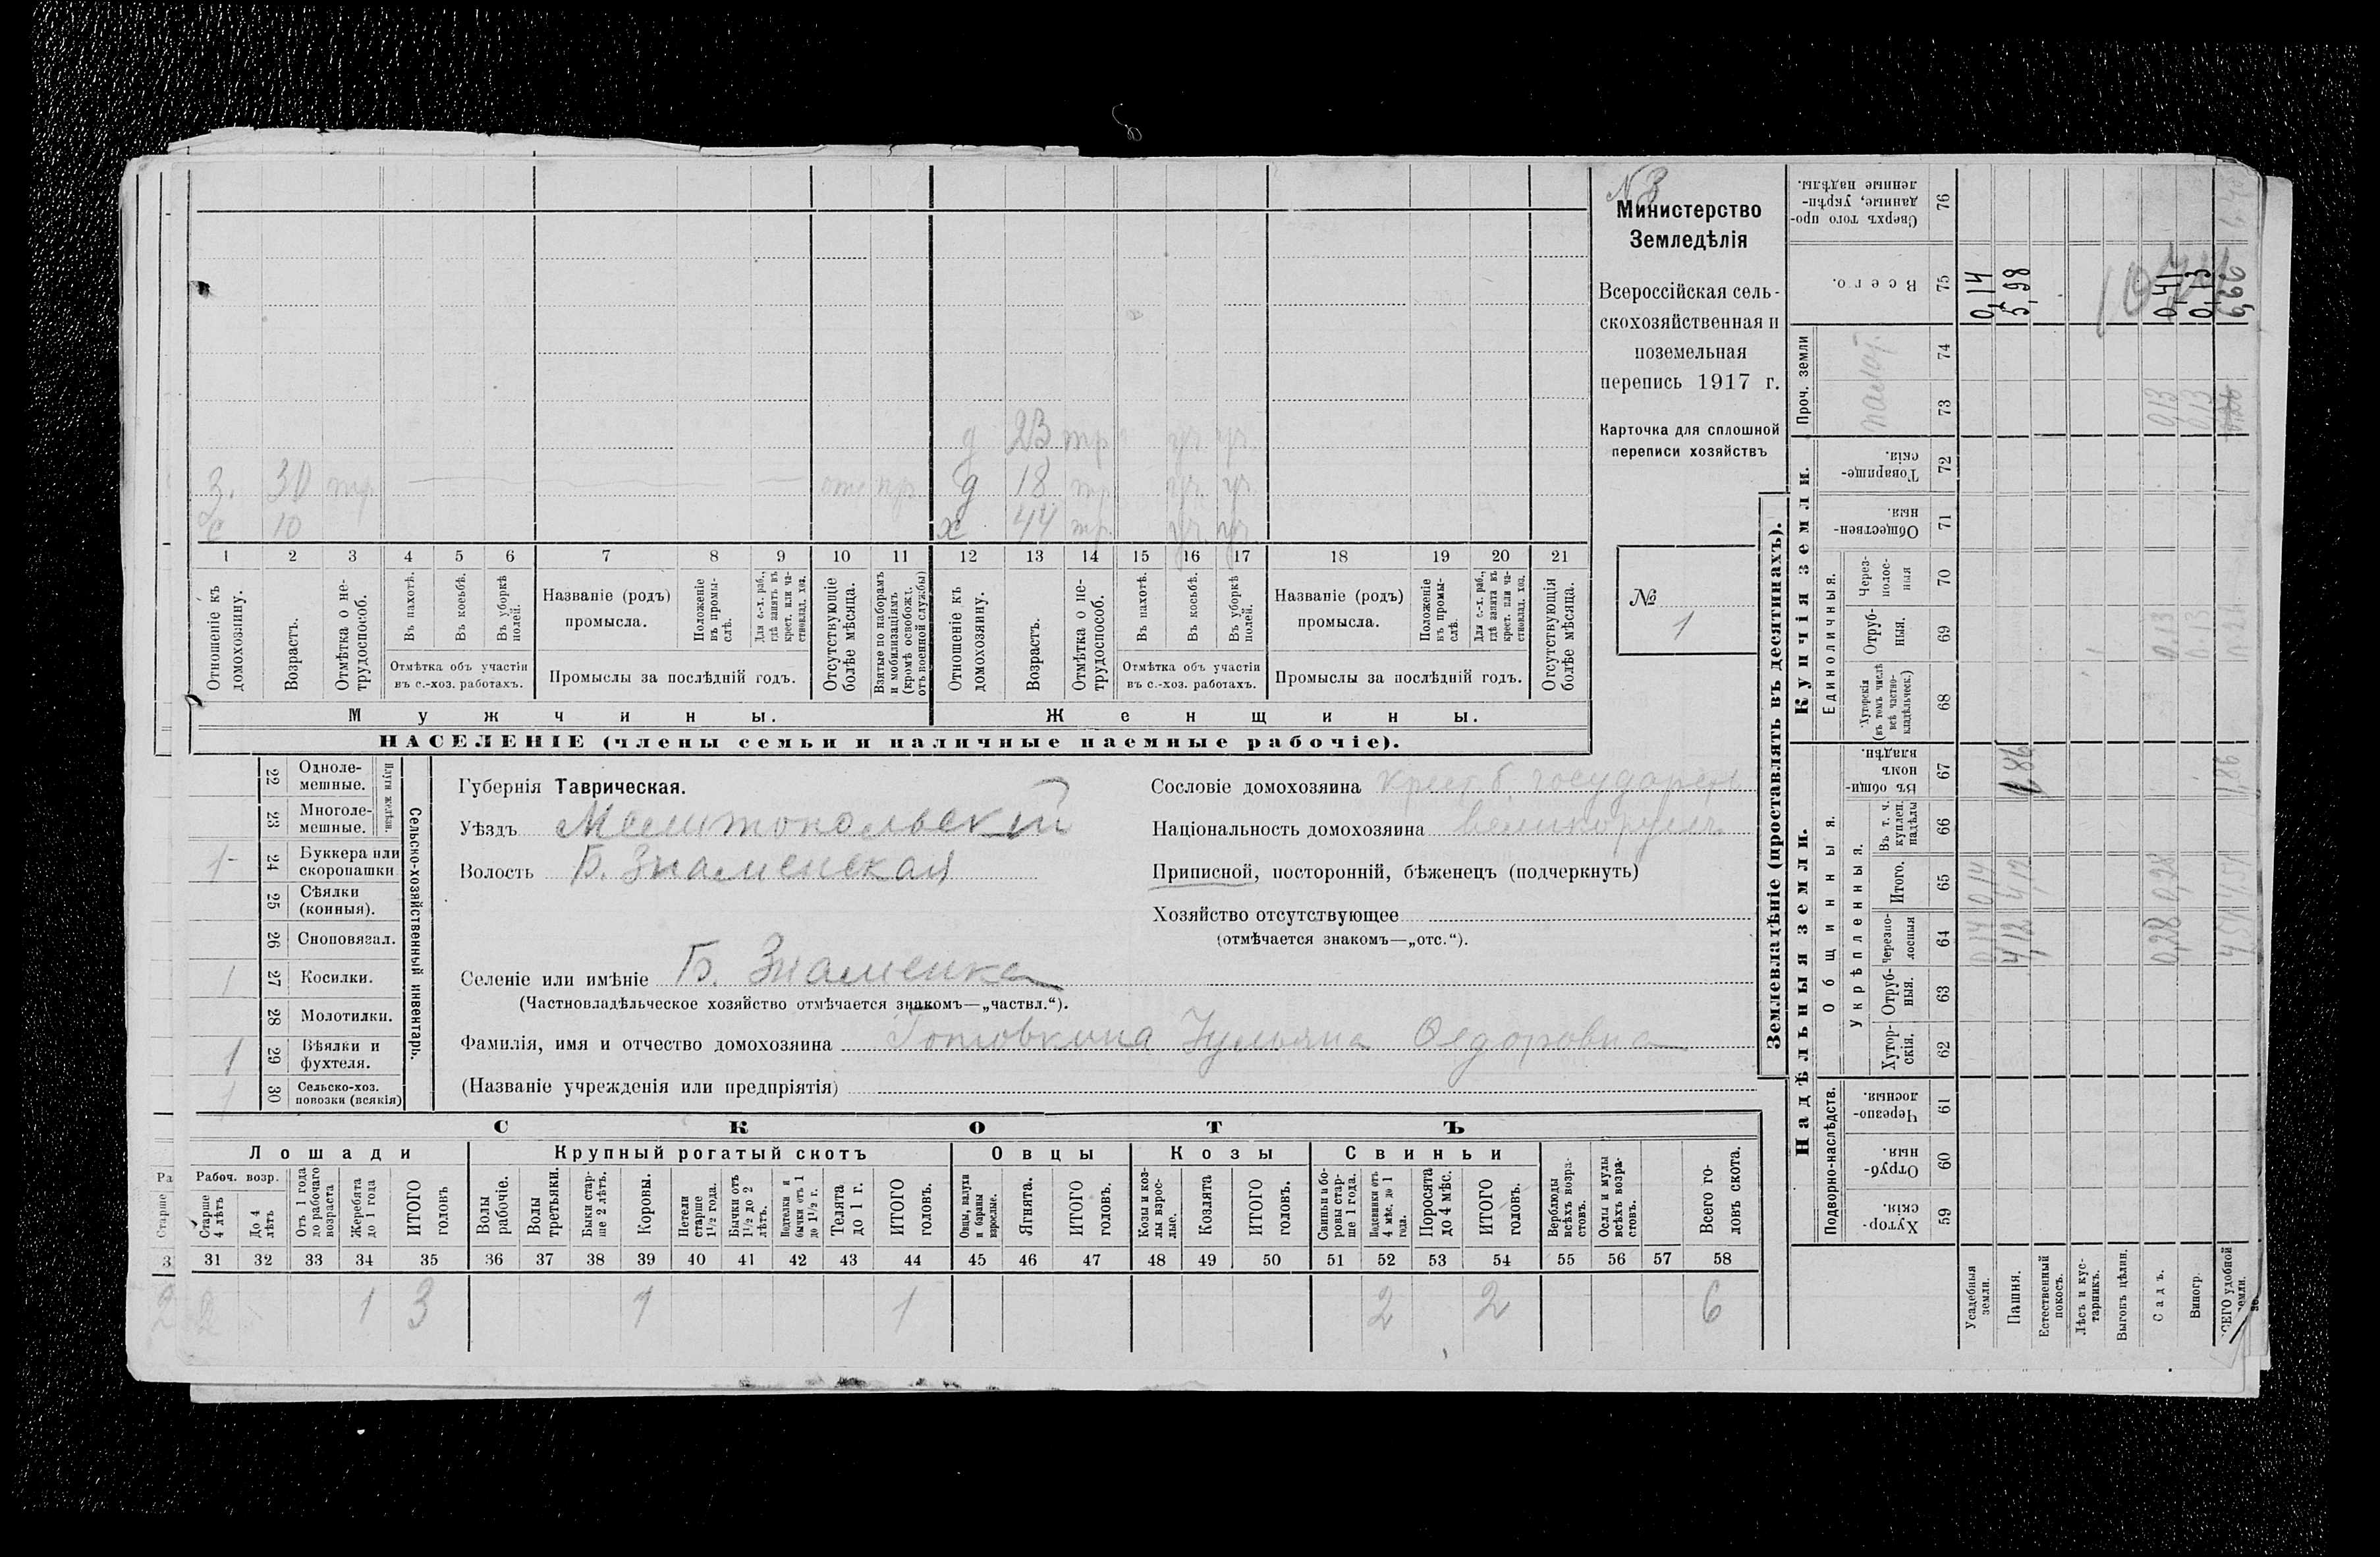 N 3
Министерство
Земледѣлія
Всероссійская сель-
скохозяйственная и
поземельная
перепись 1917 г.
Карточка для сплошной
переписи хозяйствъ
№
1
д 23 тр уч уч
з. 30 тр отс пр д 18 тр уч. уч.
с 10 х 44 тр. уч уч
1 2 3 4 5 6 7 8 9 10 11 12 13 14 15 16 17 18 19 20 21
Отношеніе къ домохозяину.
Возрастъ.
Отмѣтка о нетрудоспособ.
Въ пахотѣ.
Въ косьбѣ.
Въ уборкѣ полей.
Отмѣтка объ участіи
въ с.-хоз. работахъ.
Названіе (родъ)
промысла.
Положеніе въ промыслѣ.
Для с.-х. раб., гдѣ занятъ въ крест. или частновлад. хоз.
Промыслы за послѣдній годъ.
Отсутствующіе болѣе мѣсяца.
Взятые по наборамъ и мобилизаціямъ (кромѣ освобожд. отъ военной службы)
Отношеніе къ домохозяину.
Возрастъ.
Отмѣтка о нетрудоспособ.
Въ пахотѣ.
Въ косьбѣ.
Въ уборкѣ полей.
Отмѣтка объ участіи
въ с.-хоз. работахъ.
Названіе (родъ)
промысла.
Положеніе въ промыслѣ.
Для с.-х. раб., гдѣ занята въ крест. или частновлад. хоз.
Промыслы за послѣдній годъ.
Отсутствующія болѣе мѣсяца.
Мужчины.
Женщины.
НАСЕЛЕНІЕ (члены семьи и наличные наемные рабочіе).
22 Однолемешные.
23 Многолемешные.
Плуги желѣзн.
1 24 Буккера или скоропашки
25 Сѣялки (конныя).
26 Сноповязал.
1 27 Косилки.
28 Молотилки.
1 29 Вѣялки и фухтеля.
1 30 Сельско-хоз. повозки (всякія)
Сельско-хозяйственный инвентарь.
Губернія Таврическая.
Уѣздъ Мелитопольскій
Волость Б. Знаменская
Селеніе или имѣніе Б. Знаменка
(Частновладѣльческое хозяйство отмѣчается знакомъ—„частвл.“).
Фамилія, имя и отчество домохозяина Готовкина Ульяна Федоровна
(Названіе учрежденія или предпріятія)
Сословіе домохозяина крест. б. государст
Національность домохозяина великорусск.
Приписной, посторонній, бѣженецъ (подчеркнуть)
Хозяйство отсутствующее
(отмѣчается знакомъ—„отс.“).
СКОТЪ
Лошади Крупный рогатый скотъ Овцы Козы Свиньи
Рабоч. возр.
Старше 4 лѣтъ
До 4 лѣтъ
Отъ 1 года до рабочаго возраста
Жеребята до 1 года
ИТОГО головъ
Волы рабочіе.
Волы третьяки.
Быки старше 2 лѣтъ.
Коровы.
Нетели старше 1½ года.
Бычки отъ 1½ до 2 лѣтъ.
Подтелки и бычки отъ 1 до 1½ г.
Телята до 1 г.
ИТОГО головъ.
Овцы, валухи и бараны взрослые.
Ягнята.
ИТОГО головъ.
Козы и козлы взрослые.
Козлята
ИТОГО головъ.
Свиньи и боровы старше 1 года.
Подсвинки отъ 4 мѣс. до 1 года.
Поросята до 4 мѣс.
ИТОГО головъ.
Верблюды всѣхъ возрастовъ.
Ослы и мулы всѣхъ возрастовъ.
Всего головъ скота.
31 32 33 34 35 36 37 38 39 40 41 42 43 44 45 46 47 48 49 50 51 52 53 54 55 56 57 58
2 1 3 1 1 2 2 6
Землевладѣніе (проставлять въ десятинахъ).
Надѣльныя земли.
Купчія земли.
Проч. земли
Подворно-наслѣдств.
Общинныя.
Укрѣпленныя.
Единоличныя.
Хуторскія. 59
Отрубныя. 60
Черезполосныя. 61
Хуторскія. 62
Отрубныя. 63
Черезполосныя 64
Итого. 65
Въ т. ч. куплен. надѣлы 66
Въ общинномъ владѣн. 67
Хуторскія (въ томъ числѣ всѣ частновладѣльческ.) 68
Отрубныя. 69
Черезполосныя 70
Общественныя. 71
Товарищескія. 72
73
74
Всего. 75
Сверхъ того проданные, укрѣпленные надѣлы. 76
Усадебныя земли. 0,14 0,14 0,14
Пашня. 4,12 4,12 1,86 5,98
Естественный покосъ.
Лѣсъ и кустарникъ.
Выгонъ цѣлин.
Садъ. 0,28 0,28 0,13 0,13 0,41
Виногр. 0,13 0,13 0,13
ВСЕГО удобной земли. 4,54 4,54 1,86 6,66